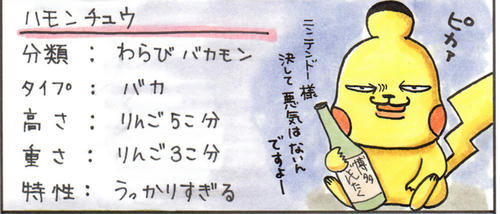 ハモンチュウ
分類：わらびバカモン
タイプ：バカ
高さ：りんご5こ分
重さ：りんご3こ分
特性：うっかりすぎる
ニンテンドー様
決して悪気はないん
ですよー
ピカァ
博多